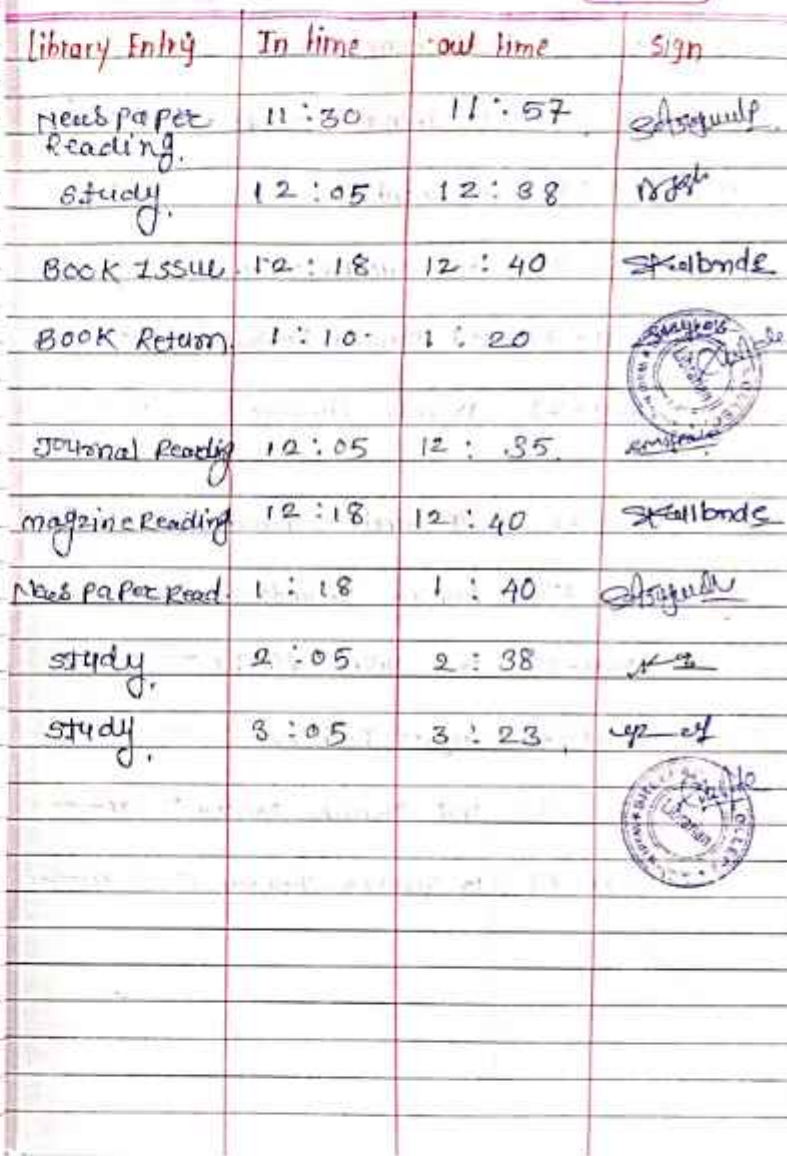 Library Entry In time out time Sign
News paper 11:30 11:57
Reading.
Study. 12:05 12:38
BOOK ISSUE 12:18 12:40
BOOK Return. 1:10 1:20
Librarian
Journal Reading 12:05 12:35
magzine Reading 12:18 12:40
News paper Read. 1:18 1:40
study. 2:05 2:38
study. 3:05 3:23
Librarian